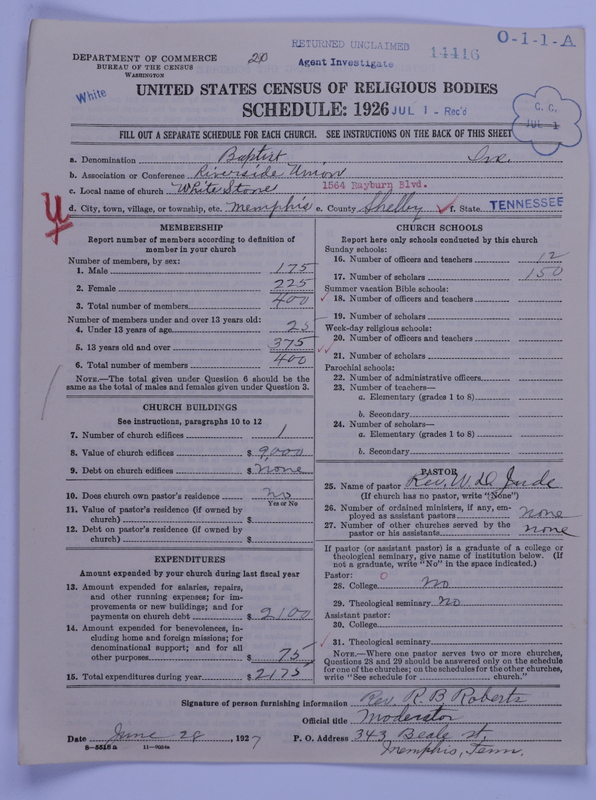 RETURNED UNCLAIMED
14416
O-1-1-A
20
Agent Investigate
DEPARTMENT OF COMMERCE
BUREAU OF THE CENSUS
WASHINGTON
White
UNITED STATES CENSUS OF RELIGIOUS BODIES
SCHEDULE: 1926
JUL 1 - Rec'd
C. C.
JUL 1
FILL OUT A SEPARATE SCHEDULE FOR EACH CHURCH. SEE INSTRUCTIONS ON THE BACK OF THIS SHEET
a. Denomination Baptist
b. Association or Conference Riverside Union
c. Local name of church White Stone 1564 Rayburn Blvd.
d. City, town, village, or township, etc. Memphis e. County Shelby f. State TENNESSEE
MEMBERSHIP
Report number of members according to definition of
member in your church
Number of members, by sex:
1. Male 175
2. Female 225
3. Total number of members 400
Number of members under and over 13 years old:
4. Under 13 years of age 25
5. 13 years old and over 375
6. Total number of members 400
NOTE.—The total given under Question 6 should be the
same as the total of males and females given under Question 3.
CHURCH BUILDINGS
See instructions, paragraphs 10 to 12
7. Number of church edifices 1
8. Value of church edifices $ 9,000
9. Debt on church edifices $ none
10. Does church own pastor's residence no
Yes or No
11. Value of pastor's residence (if owned by
church) $
12. Debt on pastor's residence (if owned by
church) $
EXPENDITURES
Amount expended by your church during last fiscal year
13. Amount expended for salaries, repairs,
and other running expenses; for im-
provements or new buildings; and for
payments on church debt $ 2100
14. Amount expended for benevolences, in-
cluding home and foreign missions; for
denominational support; and for all
other purposes $ 75
15. Total expenditures during year $ 2175
CHURCH SCHOOLS
Report here only schools conducted by this church
Sunday schools:
16. Number of officers and teachers 12
17. Number of scholars 150
Summer vacation Bible schools:
18. Number of officers and teachers
19. Number of scholars
Week-day religious schools:
20. Number of officers and teachers
21. Number of scholars
Parochial schools:
22. Number of administrative officers
23. Number of teachers—
a. Elementary (grades 1 to 8)
b. Secondary
24. Number of scholars—
a. Elementary (grades 1 to 8)
b. Secondary
PASTOR
25. Name of pastor Rev. W. D. Jude
(If church has no pastor, write "None")
26. Number of ordained ministers, if any, em-
ployed as assistant pastors none
27. Number of other churches served by the
pastor or his assistants none
If pastor (or assistant pastor) is a graduate of a college or
theological seminary, give name of institution below. (If
not a graduate, write "No" in the space indicated.)
Pastor:
28. College No
29. Theological seminary No
Assistant pastor:
30. College
31. Theological seminary
NOTE.—Where one pastor serves two or more churches,
Questions 28 and 29 should be answered only on the schedule
for one of the churches; on the schedules for the other churches,
write "See schedule for church."
Signature of person furnishing information Rev. R. B Roberts
Official title Moderator
Date June 28, 1927 P. O. Address 343 Beale st.
Memphis, Tenn.
8-5516a 11-9034a